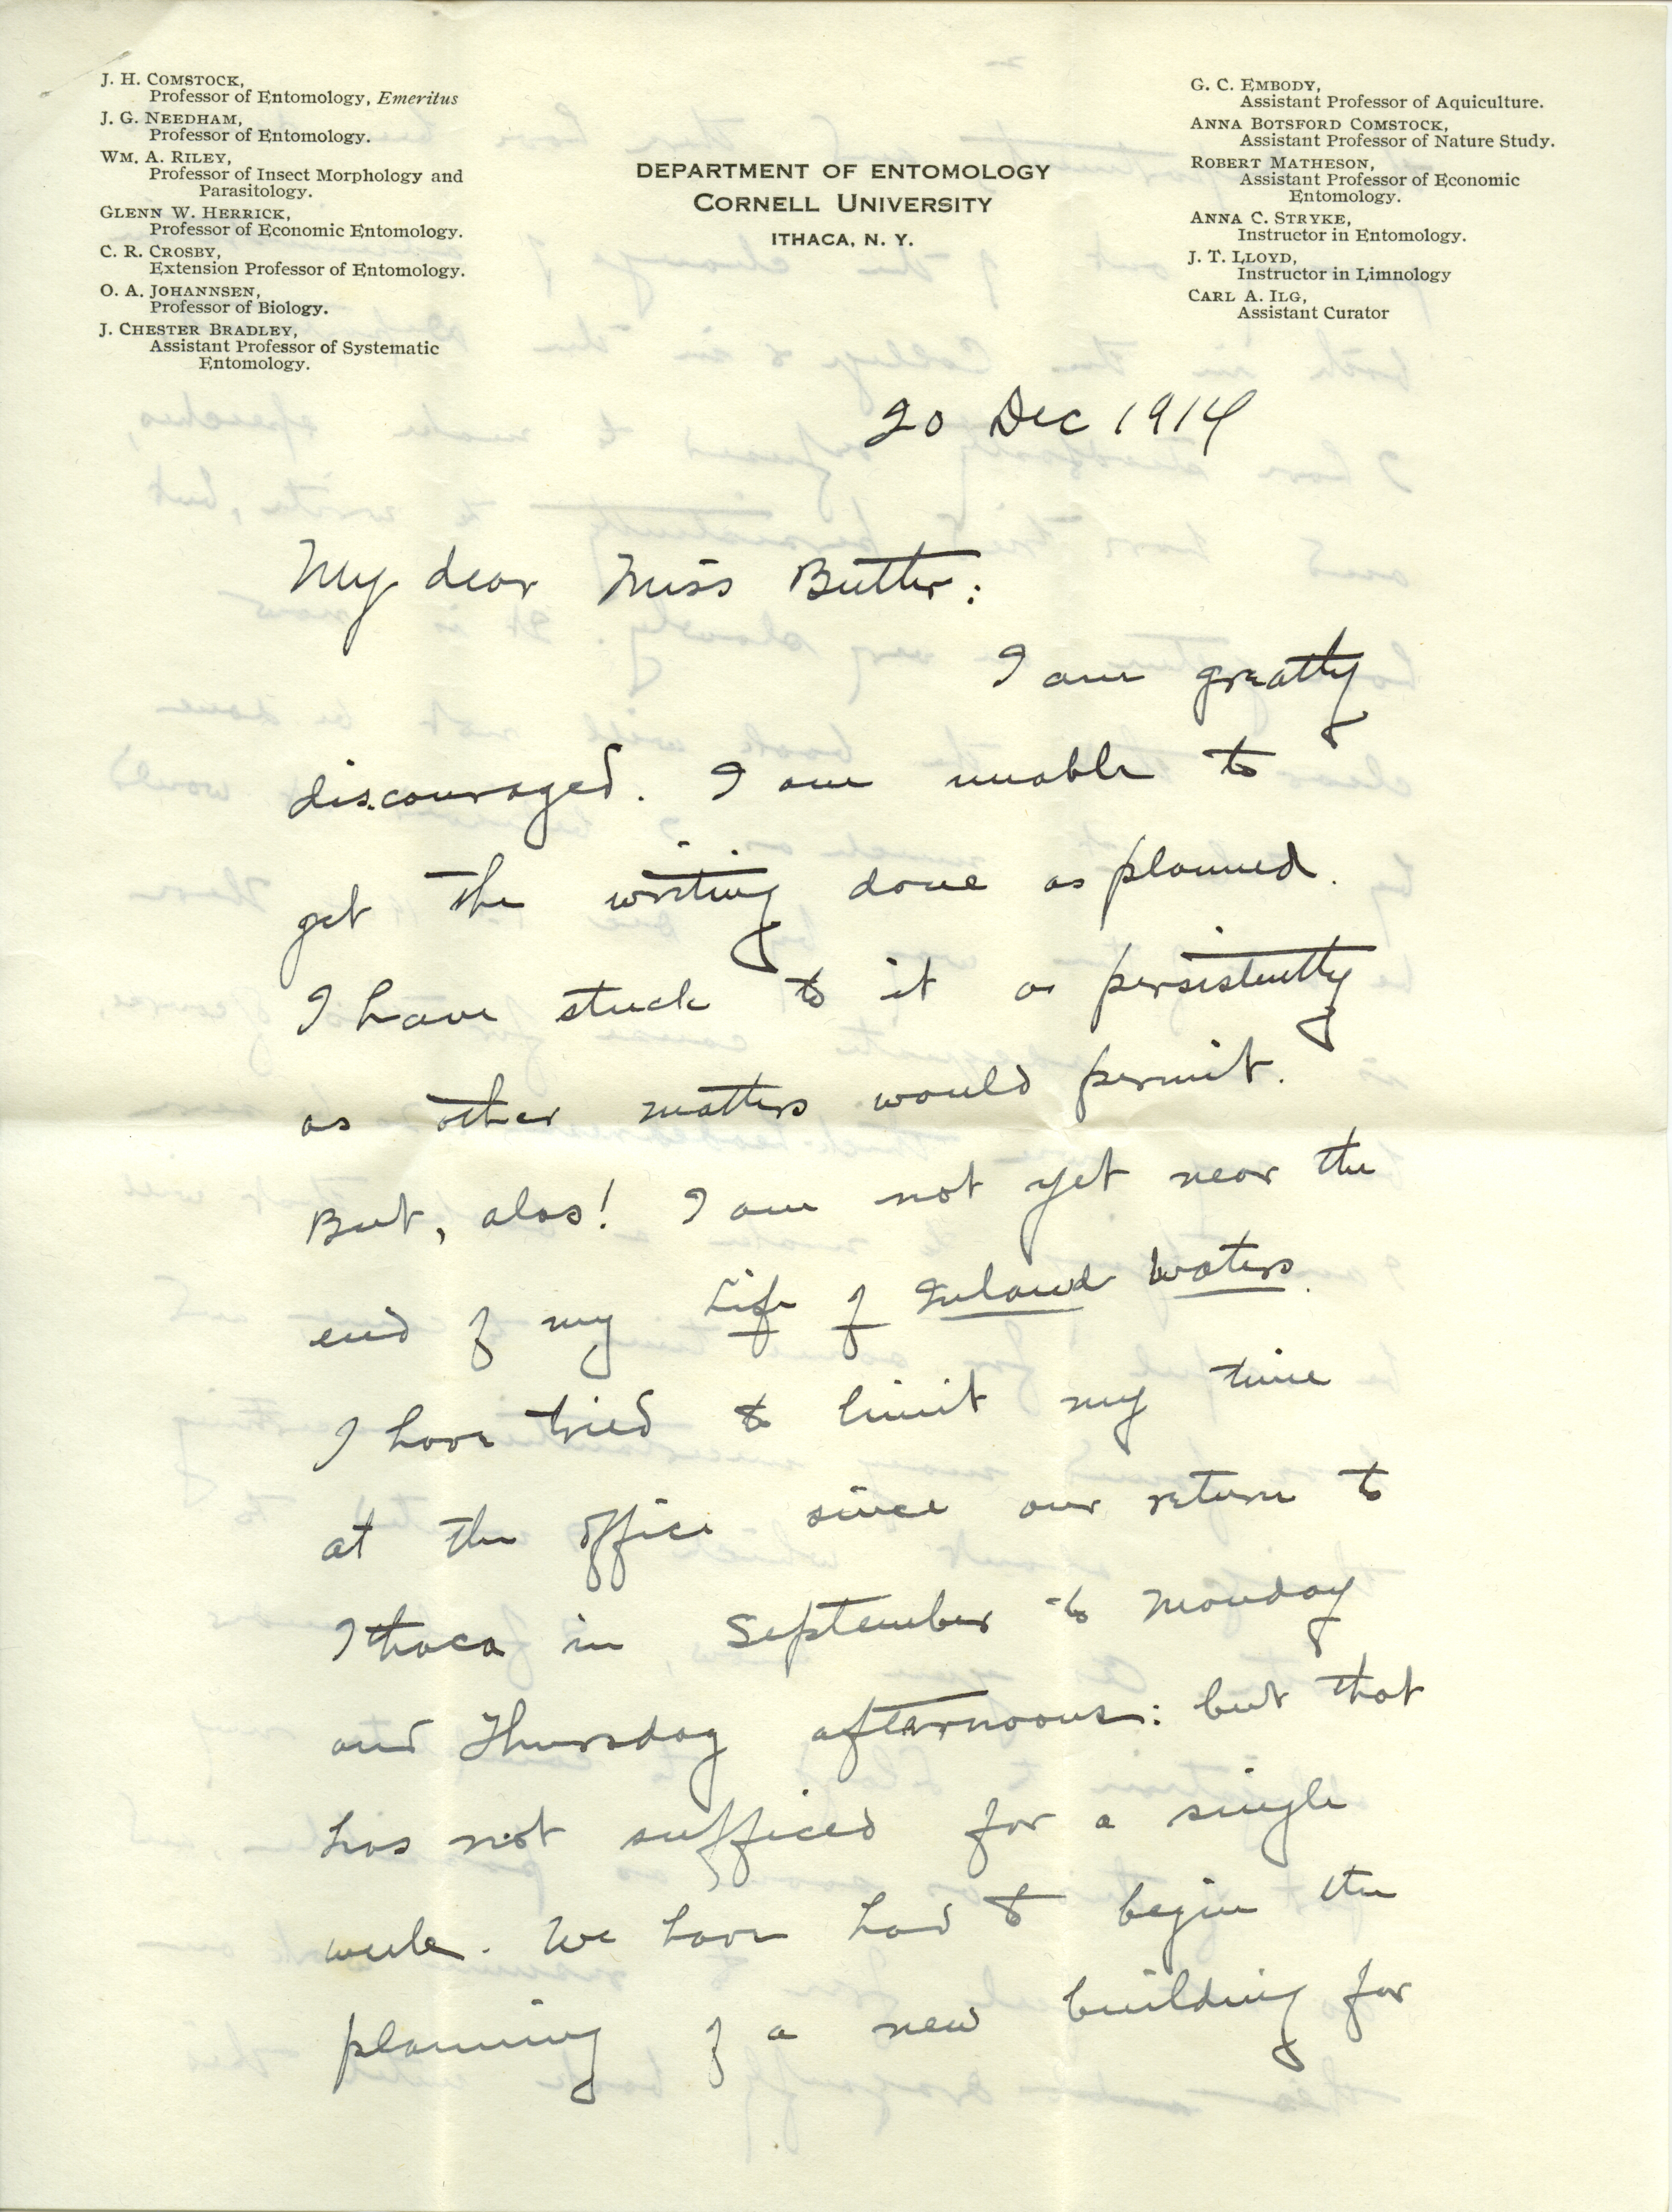 J. H. COMSTOCK,
Professor of Entomology, Emeritus
J. G. NEEDHAM,
Professor of Entomology.
WM. A. RILEY,
Professor of Insect Morphology and
Parasitology.
GLENN W. HERRICK,
Professor of Economic Entomology.
C. R. CROSBY,
Extension Professor of Entomology.
O. A. JOHANNSEN,
Professor of Biology.
J. CHESTER BRADLEY,
Assistant Professor of Systematic
Entomology.
DEPARTMENT OF ENTOMOLOGY
CORNELL UNIVERSITY
ITHACA, N. Y.
G. C. EMBODY,
Assistant Professor of Aquiculture.
ANNA BOTSFORD COMSTOCK,
Assistant Professor of Nature Study.
ROBERT MATHESON,
Assistant Professor of Economic
Entomology.
ANNA C. STRYKE,
Instructor in Entomology.
J. T. LLOYD,
Instructor in Limnology
CARL A. ILG,
Assistant Curator
20 Dec 1914
My dear Miss Butter:
I am greatly
discouraged. I am unable to
get the writing done as planned.
I have stuck to it as persistently
as other matters would permit.
But, alas! I am not yet near the
end of my Life of Inland Waters.
I have tried to limit my time
at the office since our return to
Ithaca in September to Monday
and Thursday afternoons: but that
has not sufficed for a single
week. We have had to begin the
planning of a new building for